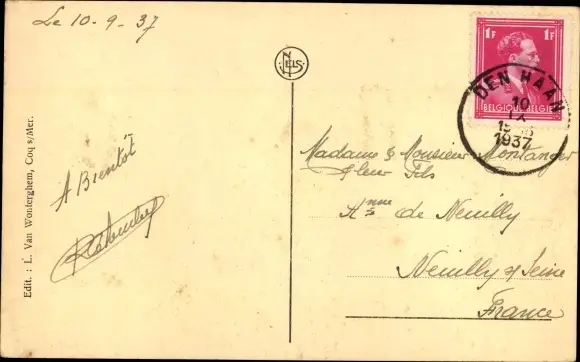 Le 10-9-37
NELS
1F 1F
BELGIQUE BELGIË
DEN HAAN
10
IX
1937
A Bientôt
Madame & Monsieur Montanger
& leur Fils
Ane de Neuilly
Neuilly s/ Seine
France
Edit. : L. Van Wonterghem, Coq s/Mer.